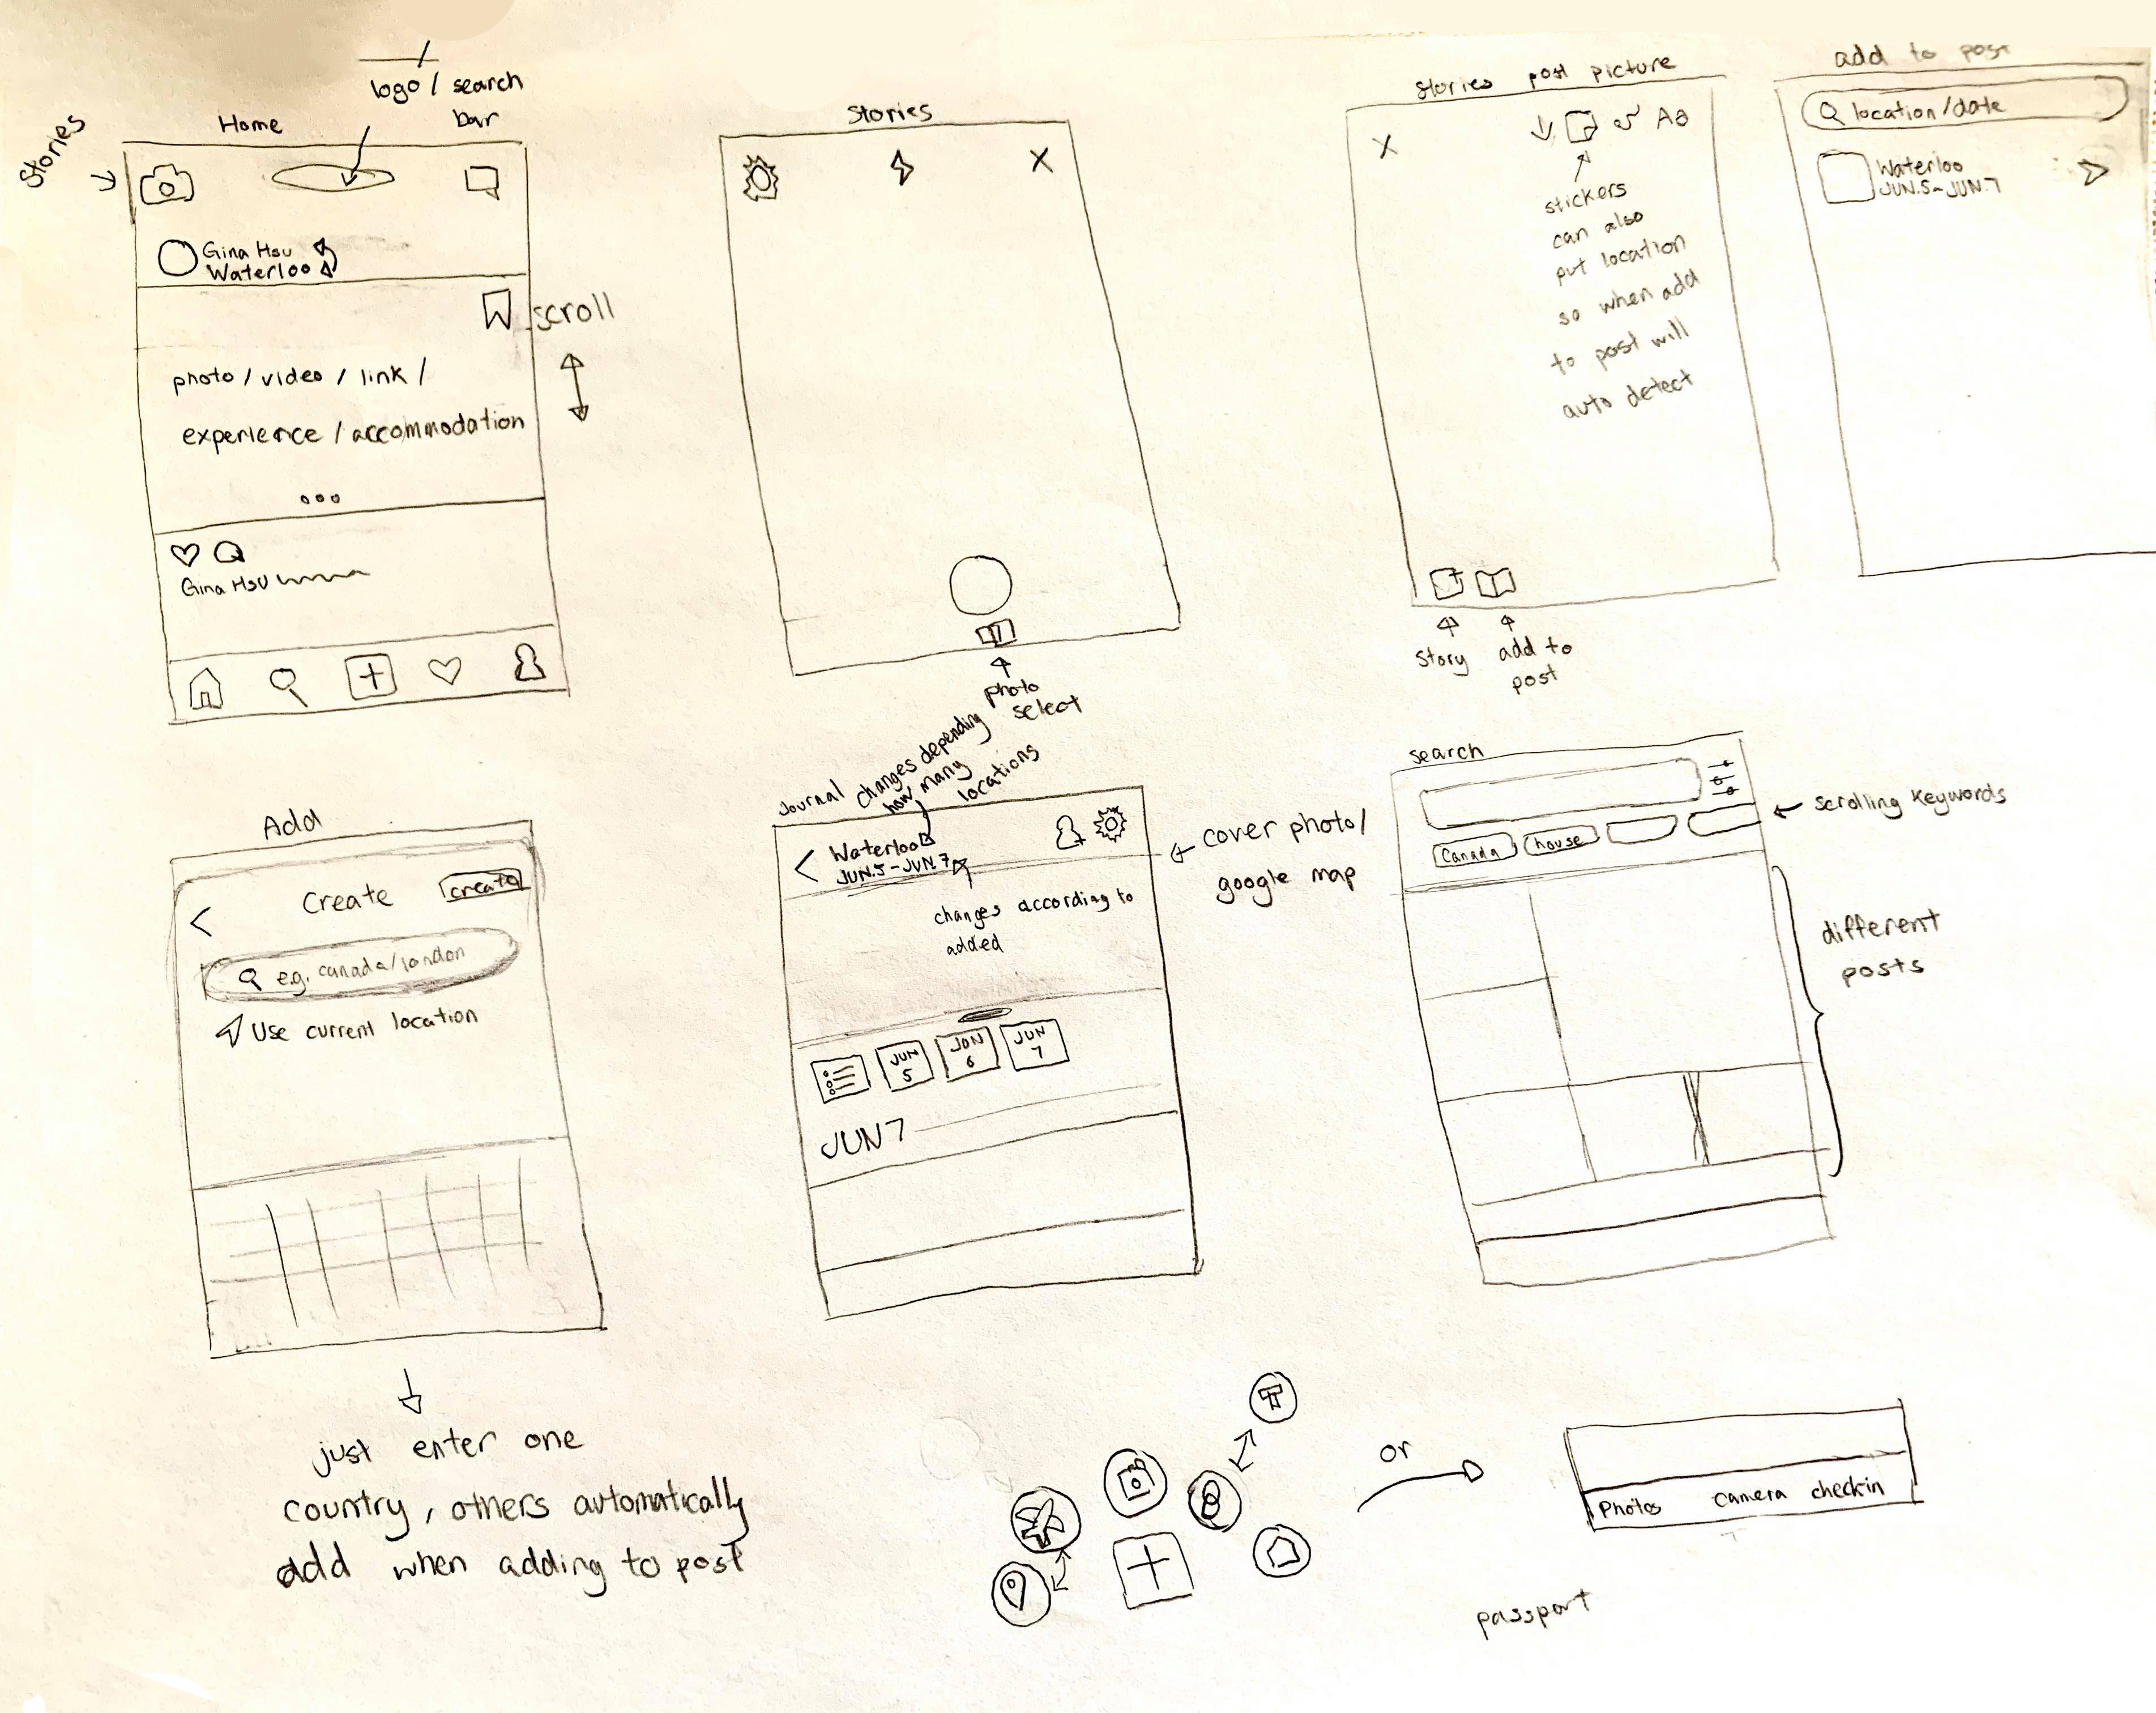 logo / search
bar
Home
Stories
Gina Hsu
Waterloo
scroll
photo / video / link /
experience / accommodation
Gina HSU
Stories
photo
select
Stories post picture
Aa
stickers
can also
put location
so when add
to post will
auto detect
Story
add to
post
add to post
location/date
Waterloo
JUN.5-JUN.7
Add
Create
create
e.g. canada/london
Use current location
just enter one
country, others automatically
add when adding to post
Journal
changes depending
how many
locations
Waterloo
JUN.5-JUN.7
changes according to
added
cover photo/
google map
JUN
5
JUN
6
JUN
7
JUN 7
search
Canada
house
scrolling keywords
different
posts
T
or
Photos camera checkin
passport